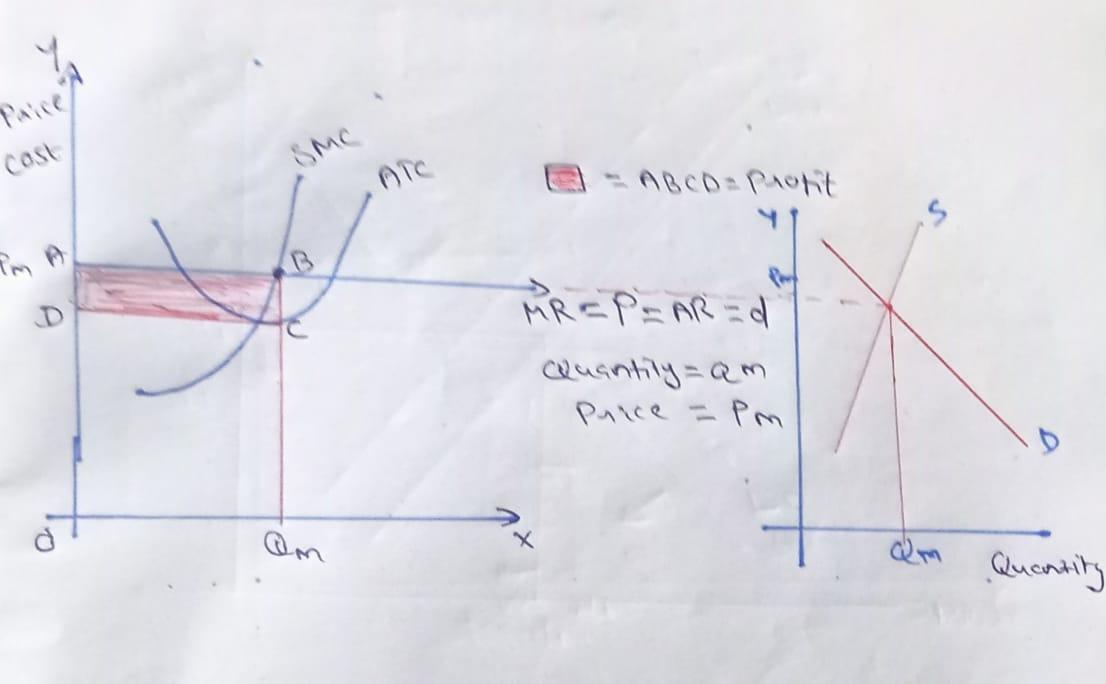 Y
Price
cost
SMC
ATC
Pm A
B
D
C
O
Qm
X
= ABCD = Profit
MR = P = AR = d
Quantity = Qm
Price = Pm
Y
S
Pm
D
Qm
Quantity